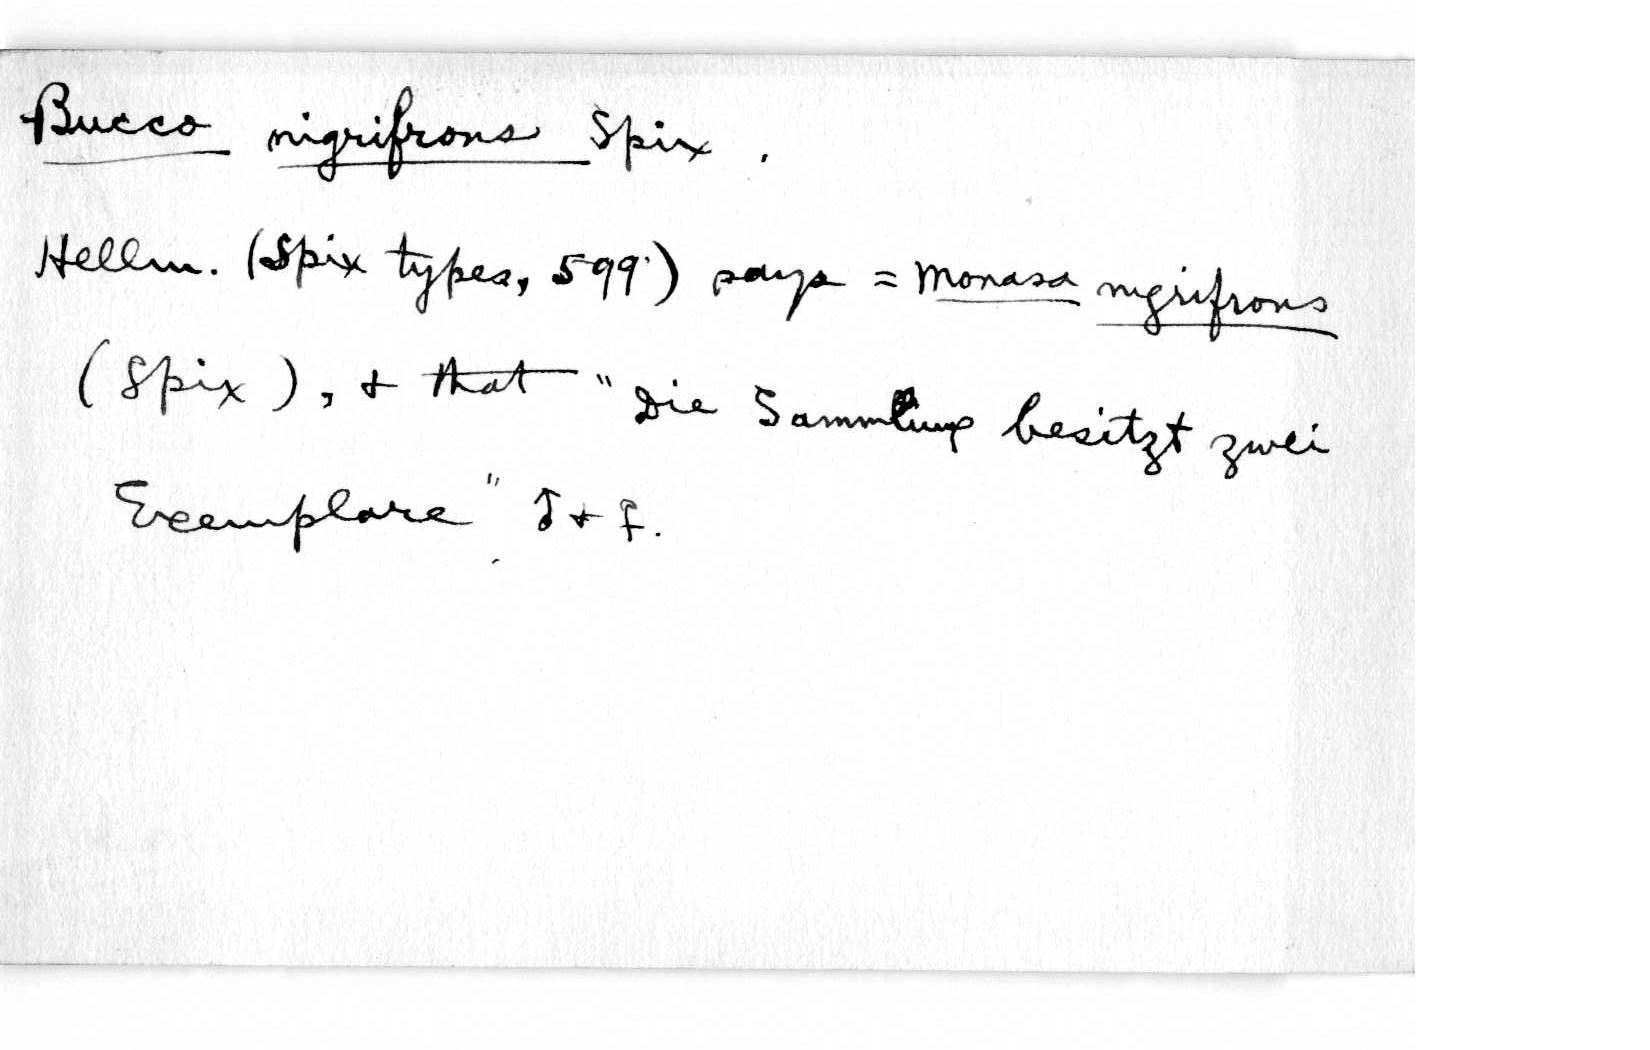 Bucco nigrifrons Spix.
Hellm. (Spix types, 599) says = Monasa nigrifrons
(Spix), + that "Die Sammlung besitzt zwei
Exemplare" ♂ + ♀.